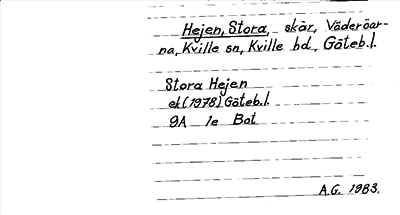 Hejen, Stora, skär, Väderöar-
na, Kville sn, Kville hd, Göteb.l.
Stora Hejen
ek (1978) Göteb.l.
9A 1e Bot
A.G. 1983.